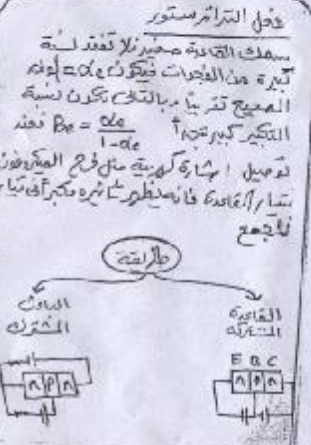 عمل الترانزستور
سمك القاعدة صغير فلا تفقد نسبة
كبيرة من الفجوات فيكون αe =
الصحيح تقريباً وبالتالى تكون نسبة
التكبير كبيرة جداً βe = αe / 1-αe فعند
توصيل إشارة كهربية مثل خرج الميكرفون
بتيار القاعدة فإنه يظهر تأثيره مكبراً فى تيار
المجمع
طريقة
القاعدة المشتركة
الباعث المشترك
E B C
n p n
n p n